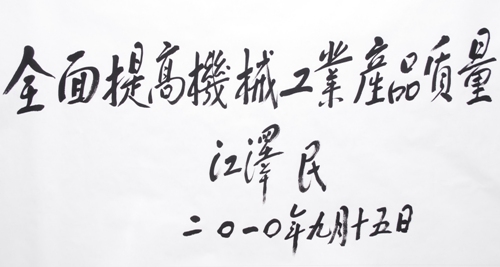 全面提高機械工業產品质量
江澤民
二〇一〇年九月十五日